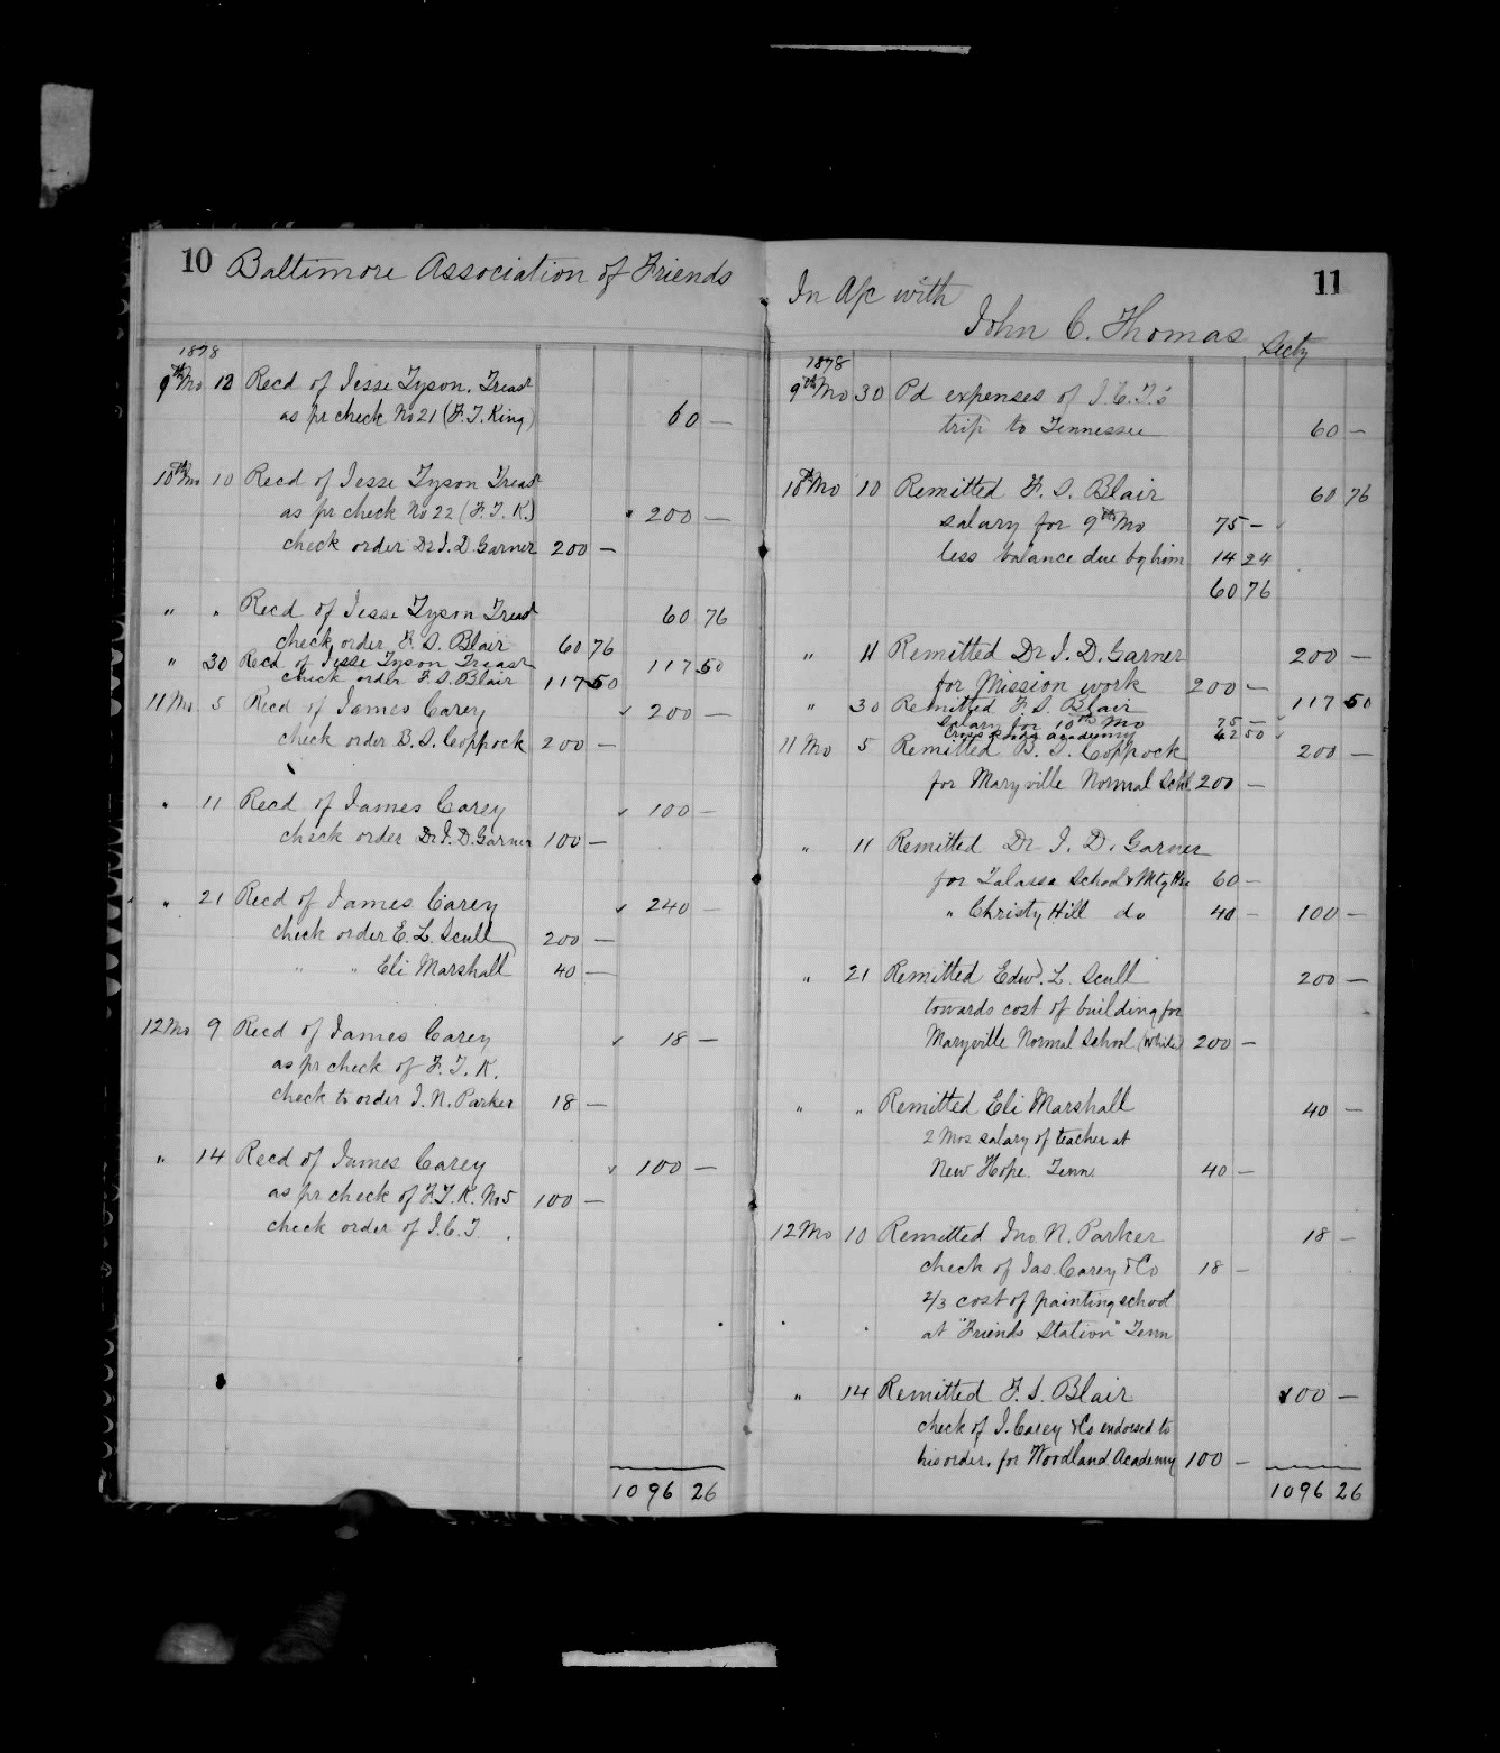 10 Baltimore Association of Friends
1878
9th Mo 12 Recd of Jesse Tyson. Treast
as pr check No 21 (F. T. King) 60 —
10th Mo 10 Recd of Jesse Tyson Treast
as pr check No 22 (F. T. K.) 200 —
check order Dr J. D. Garner 200 —
" " Recd of Jesse Tyson Treast 60 76
check order F. S. Blair 60 76
" 30 Recd of Jesse Tyson Treast 117 50
check order F. S. Blair 117 50
11 Mo 5 Recd of James Carey ✓ 200 —
check order B. S. Coppock 200 —
" 11 Recd of James Carey ✓ 100 —
check order Dr J. D. Garner 100 —
" 21 Recd of James Carey ✓ 240 —
check order E. L. Scull 200 —
" " Eli Marshall 40 —
12 Mo 9 Recd of James Carey ✓ 18 —
as pr check of F. T. K.
check to order J. N. Parker 18 —
" 14 Recd of James Carey ✓ 100 —
as pr check of F. T. K. No 5 100 —
check order of J. C. T.
1096 26
In A/c with 11
John C. Thomas Secty
1878
9th Mo 30 Pd expenses of J. C. T.'s
trip to Tennessee 60 —
10th Mo 10 Remitted F. S. Blair 60 76
salary for 9th Mo 75 —
less balance due by him 14 24
60 76
" 11 Remitted Dr J. D. Garner 200 —
for Mission work 200 —
" 30 Remitted F. S. Blair 117 50
salary for 10th Mo 75 —
academy 42 50
11 Mo 5 Remitted B. S. Coppock 200 —
for Maryville Normal Schl 200 —
" 11 Remitted Dr J. D. Garner
for School & Mtg Hse 60 —
" Christy Hill do 40 — 100 —
" 21 Remitted Edwd. L. Scull 200 —
towards cost of building for
Maryville Normal School (White) 200 —
" " Remitted Eli Marshall 40 —
2 Mos salary of teacher at
New Hope. Tenn. 40 —
12 Mo 10 Remitted Jno N. Parker 18 —
check of Jas. Carey & Co 18 —
2/3 cost of painting school
at "Friends Station" Tenn
" 14 Remitted F. S. Blair 100 —
check of J. Carey & Co endorsed to
his order. for Woodland Academy 100 —
1096 26